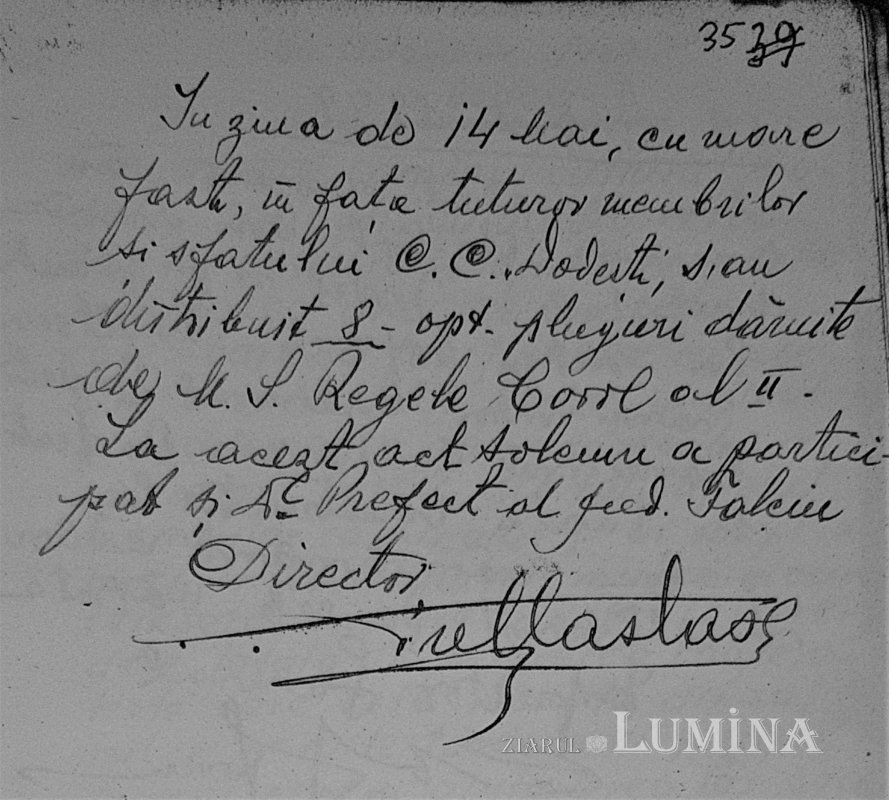 35
In ziua de 14 Mai, cu mare
fast, în fața tuturor membrilor
si sfatului C. C. Dodesti, s-au
distribuit 8 - opt - pluguri dăruite
de M. S. Regele Carol al II -
La acest act solemn a partici-
pat și Dl Prefect al jud. Falciu
Director
ZIARUL LUMINA